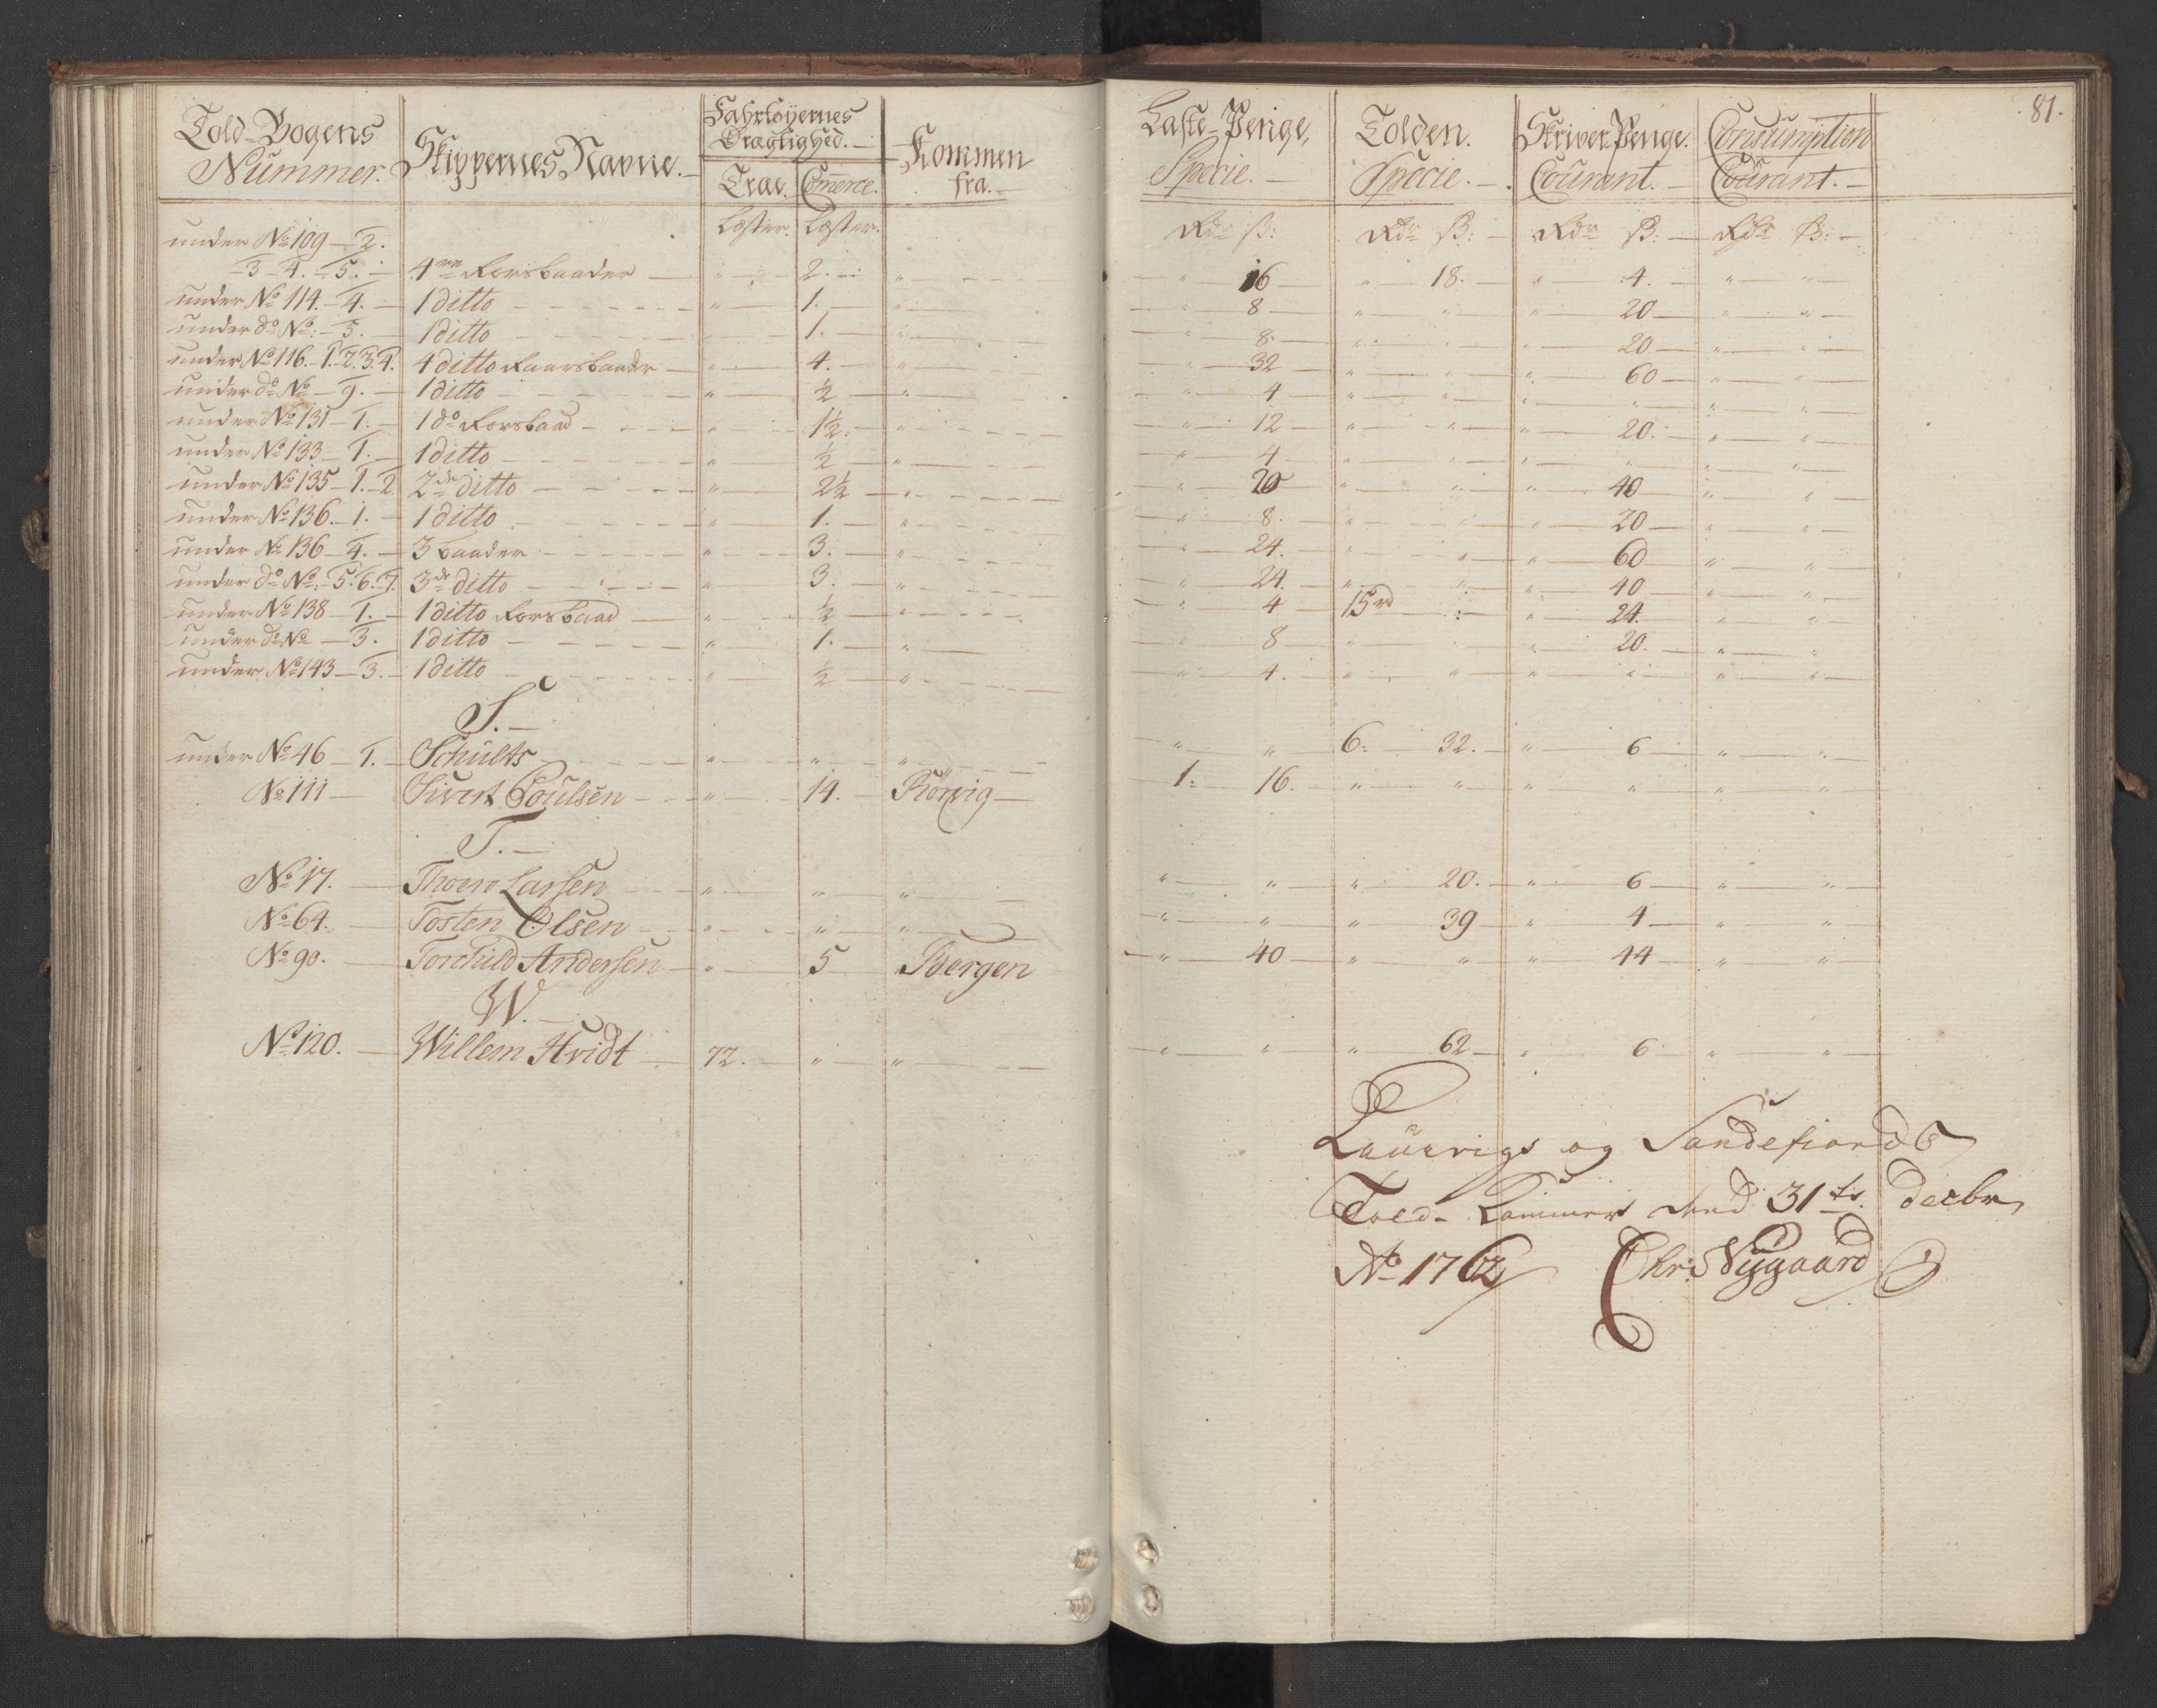 81.
Told-Bogens Nummer. Skippernes Navne. Fahrtöyernes Drægtighed. Kommen fra. Laste-Penge, Specie. Tolden. Specie. Skriver Penge. Courant. Consumption Courant.
Træ. Commerce.
Læster. Læster. Rdr ß: Rdr ß: Rdr ß: Rdr ß:
under No 109 - 2.
- 3 - 4. - 5. 4re Rorsbaader " 2. " " 16 " 18. " 4. " "
under No 114. - 4. 1 ditto " 1. " " 8 " " " 20 " "
under do No: - 5. 1 ditto " 1. " " 8. " " " 20 " "
under No 116. - 1. 2. 3. 4. 4 ditto Raarsbaader " 4. " " 32 " " " 60 " "
under do No - 9. 1 ditto " ½ " " 4 " " " " " "
under No 131 - 1. 1 do Rorsbaad " 1½. " " 12 " " " 20. " "
under No 133 - 1. 1 ditto " ½ " " 4 " " " " " "
under No 135 - 1. - 2. 2de ditto " 2½ " " 20 " " " 40 " "
under No 136. - 1. 1 ditto " 1. " " 8. " " " 20 " "
under No 136 - 4. 3 baader " 3. " " 24. " " " 60 " "
under do No. - 5. 6. 7. 3de ditto " 3. " " 24. " " " 40 " "
under No 138 - 1. 1 ditto Rorsbaad " ½ " " 4 15rd " " 24. " "
under do No - 3. 1 ditto " 1. " " 8 " " " 20. " "
under No 143 - 3. 1 ditto " ½ " " 4. " " " " " "
S.
under No 46 - 1. Schults " " " " " 6. 32. " 6 " "
No 111 Sivert Poulsen " 14. Rörvig 1. 16. " " " " " "
T.
No 17. Thoer Larsen " " " " " " 20. " 6 " "
No 64. Tosten Olsen " " " " " " 39 " 4 " "
No 90. Torchild Andersen " 5 Bergen " 40 " " " 44 " "
W.
No 120. Willem Hvidt 72. " " " " " 62 " 6 " "
Laurvigs og Sandefiords
Told-Kammer dend 31te decbr
Ao 1762 Chr: Nygaard